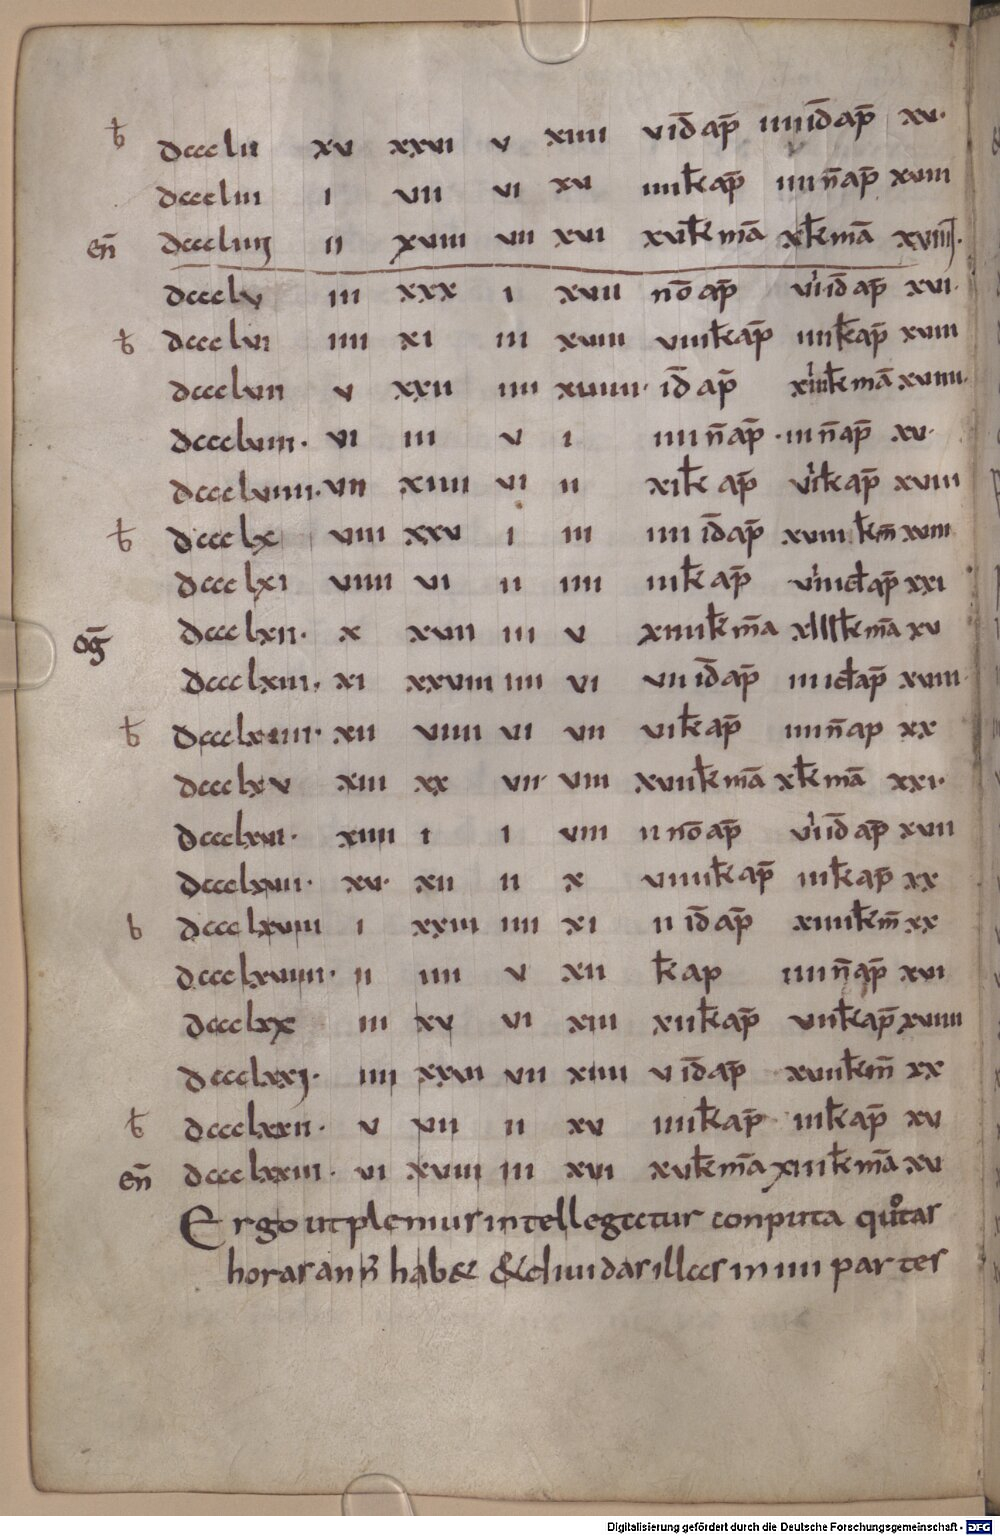 b dccclii xv xxvi v xiiii v id ap iiii id ap xv·
dcccliii i vii vi xv iiii kł ap iiii n̄ ap xviii
en̄ dcccliiij ii xviii vii xvi xvi kł ma xkł ma xviiii·
dccclv iii xxx i xvii no ap vi id ap xvi·
b dccclvi iiii xi iii xviii viiii kł ap iiii kł ap xviii
dccclvii v xxii iiii xviiii· id ap xiii kł ma xviiii·
dccclviii· vi iii v i iiii n̄ ap · iii n̄ ap xv·
dccclviiii· vii xiiii vi ii xi kł ap vi kł ap xviii
b dccclx viii xxv i iii iiii id ap xviii kł m̄ xviii
dccclxi viiii vi ii iiii iii kł ap viii id ap xxi
og dccclxii· x xvii iii v xiiii kł ma xllll kł ma xv
dccclxiii· xi xxviii iiii vi vii id ap iii id ap xviii·
b dccclxiiii· xii viiii vi vii vi kł ap iiii n̄ ap xx
dccclxv xiii xx vii· viii xvii kł ma xkł ma xxi·
dccclxvi· xiiii i i viiii ii no ap vi id ap xvii
dccclxvii· xv· xii ii x viiii kł ap iii kł ap xx
b dccclxviii i xxiii iiii xi ii id ap xiiii kł m̄ xx
dccclxviiii· ii iiii v xii kł ap iiii n̄ ap xvi
dccclxx iii xv vi xiii xii kł ap vii kł ap xviiii
dccclxxj· iiii xxvi vii xiiii v id ap xvii kł m̄ xx
b dccclxxii· v vii ii xv iiii kł ap iii kł ap xv
en̄ dccclxxiii· vi xviii iii xvi xv kł ma xiii kł ma xv
Ergo ut plenius intellegatur conputa quotas
horas ann̄ hab& & diuidas illas in iiii partes
Digitalisierung gefördert durch die Deutsche Forschungsgemeinschaft - DFG